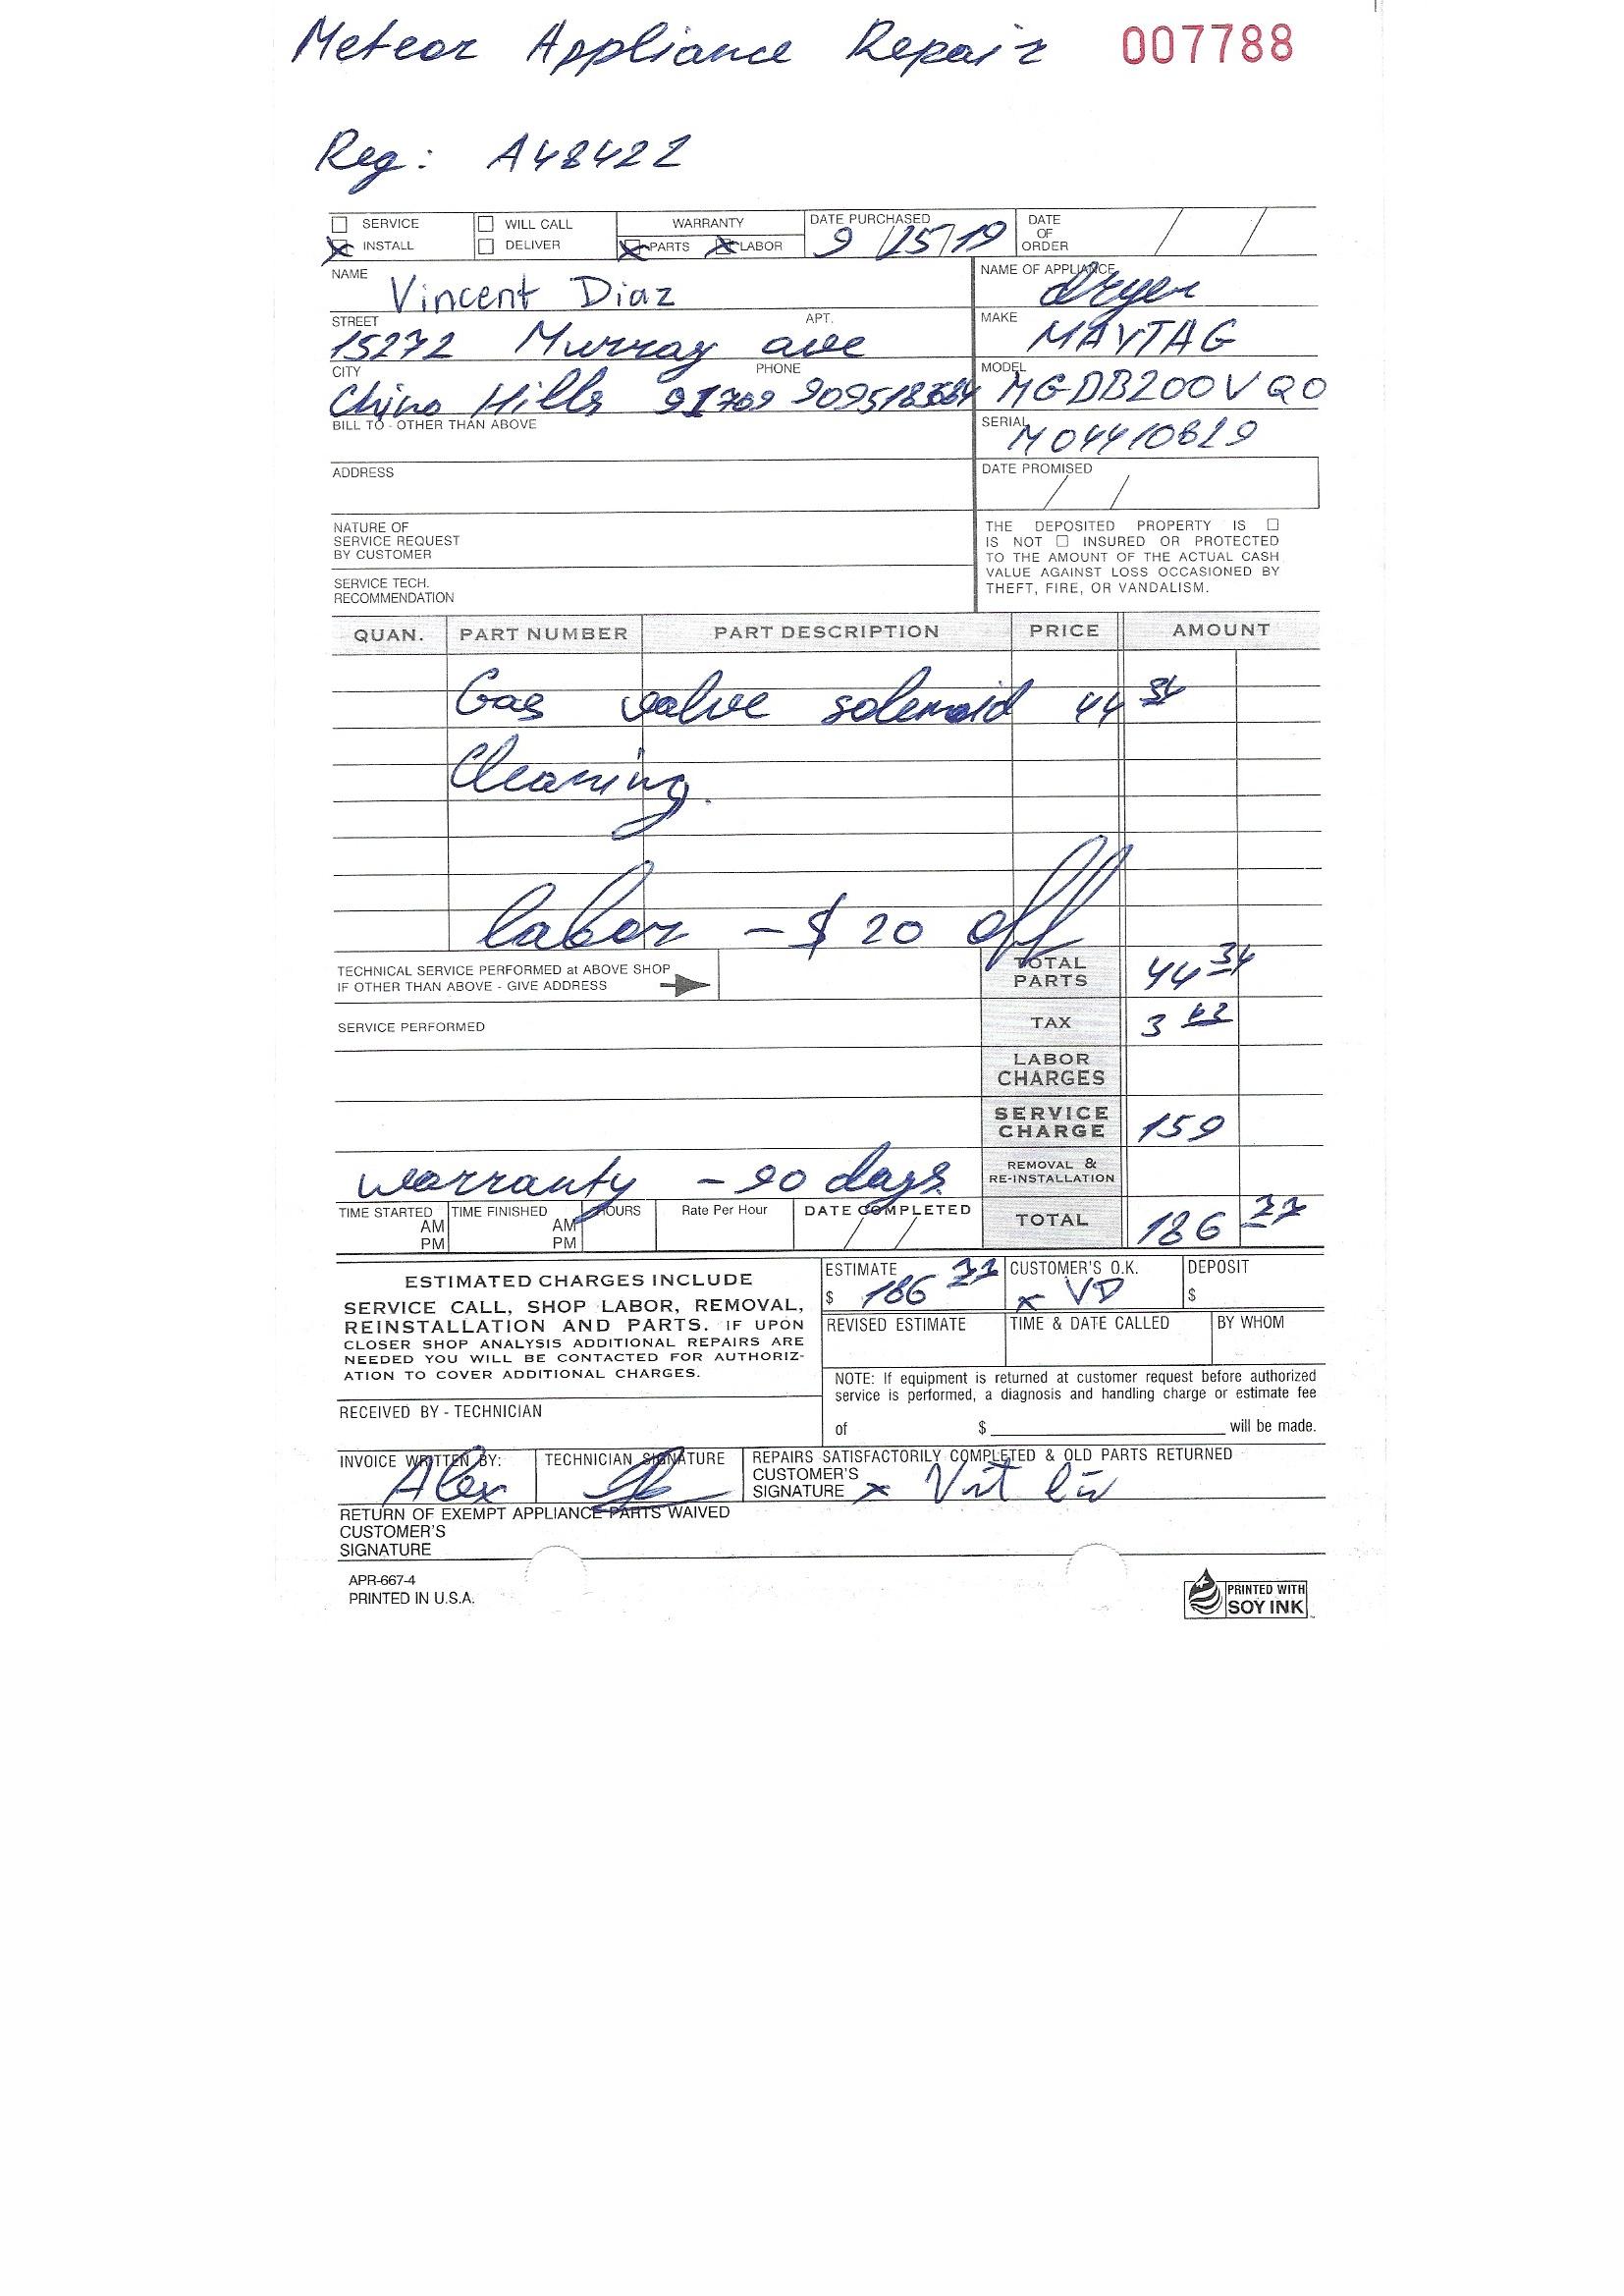 Meteor Appliance Repair 007788
Reg: A48422
SERVICE WILL CALL WARRANTY DATE PURCHASED DATE OF ORDER
INSTALL DELIVER PARTS LABOR 9/25/19
NAME Vincent Diaz NAME OF APPLIANCE dryer
STREET 15272 Murray ave APT. MAKE MAYTAG
CITY Chino Hills 91709 PHONE MODEL MGDB200VQ0
BILL TO - OTHER THAN ABOVE SERIAL M04410629
ADDRESS DATE PROMISED
NATURE OF
SERVICE REQUEST
BY CUSTOMER
SERVICE TECH.
RECOMMENDATION
THE DEPOSITED PROPERTY IS
IS NOT INSURED OR PROTECTED
TO THE AMOUNT OF THE ACTUAL CASH
VALUE AGAINST LOSS OCCASIONED BY
THEFT, FIRE, OR VANDALISM.
QUAN. PART NUMBER PART DESCRIPTION PRICE AMOUNT
Gas valve solenoid 44 34
Cleaning.
labor - $20 off
TECHNICAL SERVICE PERFORMED at ABOVE SHOP
IF OTHER THAN ABOVE - GIVE ADDRESS
TOTAL PARTS 44 34
SERVICE PERFORMED TAX 3 43
LABOR CHARGES
SERVICE CHARGE 159
warranty - 90 days REMOVAL & RE-INSTALLATION
TIME STARTED AM PM TIME FINISHED AM PM HOURS Rate Per Hour DATE COMPLETED TOTAL 186 77
ESTIMATED CHARGES INCLUDE
SERVICE CALL, SHOP LABOR, REMOVAL,
REINSTALLATION AND PARTS. IF UPON
CLOSER SHOP ANALYSIS ADDITIONAL REPAIRS ARE
NEEDED YOU WILL BE CONTACTED FOR AUTHORIZ-
ATION TO COVER ADDITIONAL CHARGES.
ESTIMATE $ 186 77 CUSTOMER'S O.K. x VD DEPOSIT $
REVISED ESTIMATE TIME & DATE CALLED BY WHOM
NOTE: If equipment is returned at customer request before authorized
service is performed, a diagnosis and handling charge or estimate fee
of $ will be made.
RECEIVED BY - TECHNICIAN
INVOICE WRITTEN BY: Alex TECHNICIAN SIGNATURE REPAIRS SATISFACTORILY COMPLETED & OLD PARTS RETURNED
CUSTOMER'S
SIGNATURE x
RETURN OF EXEMPT APPLIANCE PARTS WAIVED
CUSTOMER'S
SIGNATURE
APR-667-4
PRINTED IN U.S.A.
PRINTED WITH
SOY INK